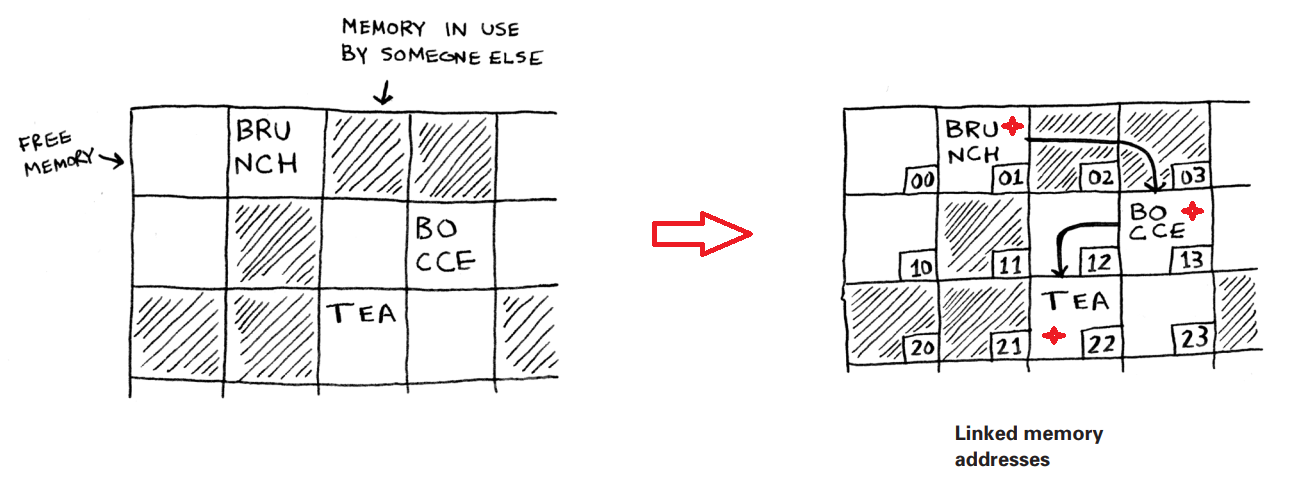 MEMORY IN USE
BY SOMEONE ELSE
FREE
MEMORY
BRU
NCH
BO
CCE
TEA
BRU
NCH
00
01
02
03
BO
CCE
10
11
12
13
TEA
20
21
22
23
Linked memory
addresses